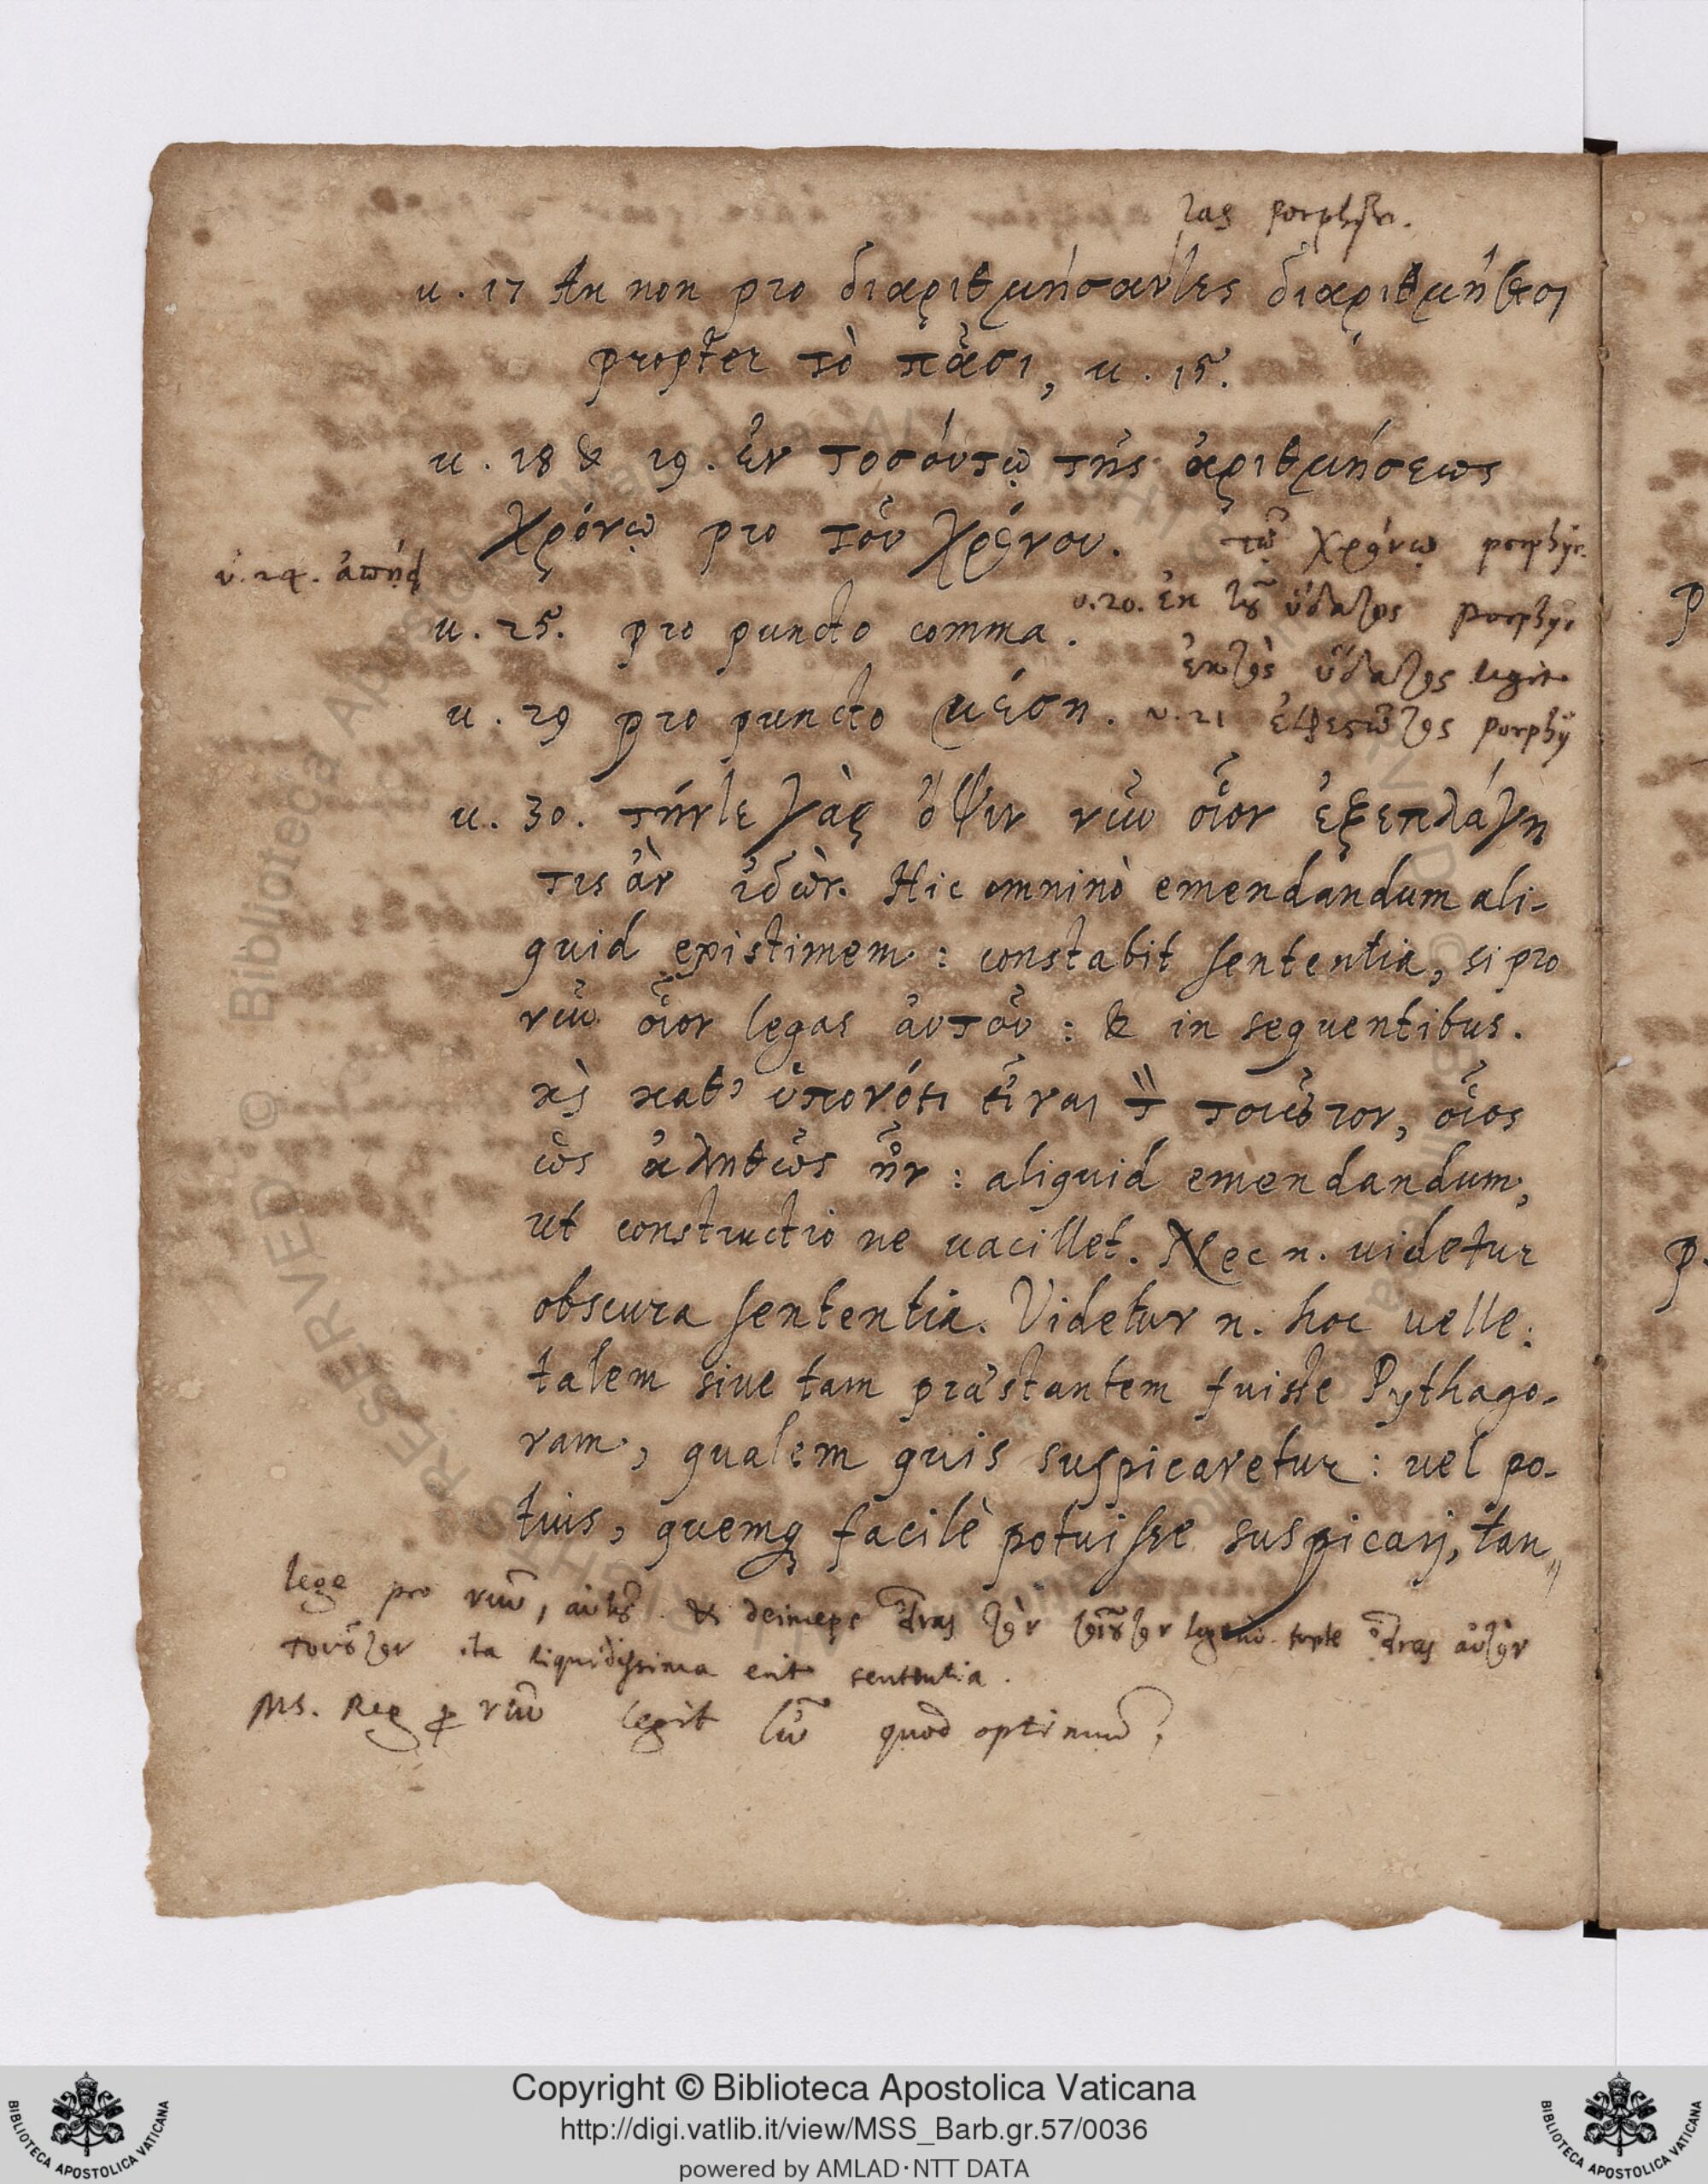 τας porphyr.
u. 17 An non pro διαριθμήσαντες διαριθμήσασι
propter τὸ πᾶσι, u. 15.
u. 18 & 19. ἐν τοσούτῳ τῆς ἀριθμήσεως
χρόνῳ pro τοῦ χρόνου. τῷ χρόνῳ porphyr.
v. 24.
v. 20. ἐκ τοῦ ὕδατος porphyr
u. 25. pro puncto comma.
ἐκτὸς ὕδατος legit
u. 29 pro puncto μέση. v. 21 ἐφεστῶτος porphy
u. 30. τήντε γὰρ ὄψιν νῦν οἷον ἐξεπλάγη
τις ἂν ἰδὼν. Hic omninò emendandum ali-
quid existimem: constabit sententia, si pro
νῦν οἷον legas αὐτοῦ: & in sequentibus.
κὶ καθ' ὑπονόησιν εἶναι τ̀ τοιοῦτον, οἷος
ὡς ἀληθῶς ἦν: aliquid emendandum,
ut constructio ne vacillet. Nec n. videtur
obscura sententia. Videtur n. hoc uelle:
talem siue tam præstantem fuisse Pythago-
ram, qualem quis suspicaretur: uel po-
tius, quemq facilè potuisse suspicarj, tan„
lege pro νῦν, αὐτοῦ & deinceps εἶναι τὸν τοιοῦτον εἶναι αὐτὸν
τοιοῦτον ita liquidissima erit sententia.
MS. Reg p νῦν legit quod optimum.
Copyright © Biblioteca Apostolica Vaticana
http://digi.vatlib.it/view/MSS_Barb.gr.57/0036
powered by AMLAD·NTT DATA